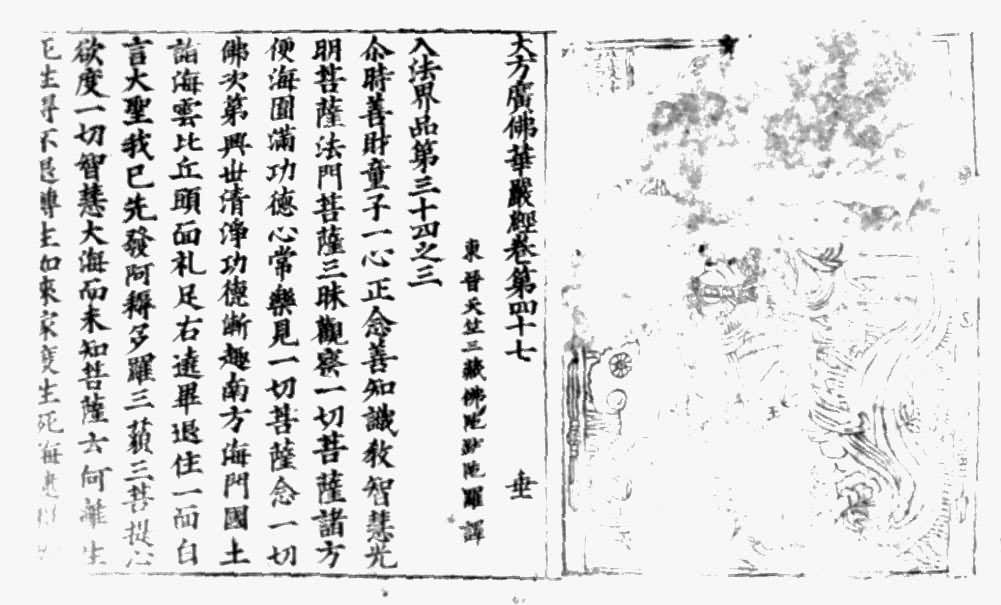 大方廣佛華嚴經卷第四十七 垂
東晉天竺三藏佛陀跋陀羅譯
入法界品第三十四之三
尒時善財童子一心正念善知識教智慧光
明菩薩法門菩薩三昧觀察一切菩薩諸方
便海圓滿功德心常樂見一切菩薩念一切
佛次第興世清淨功德漸趣南方海門國土
詣海雲比丘頭面礼足右遶畢退住一面白
言大聖我已先發阿耨多羅三藐三菩提心
欲度一切智慧大海而未知菩薩云何離生
死生得不退轉生如來家度生死海